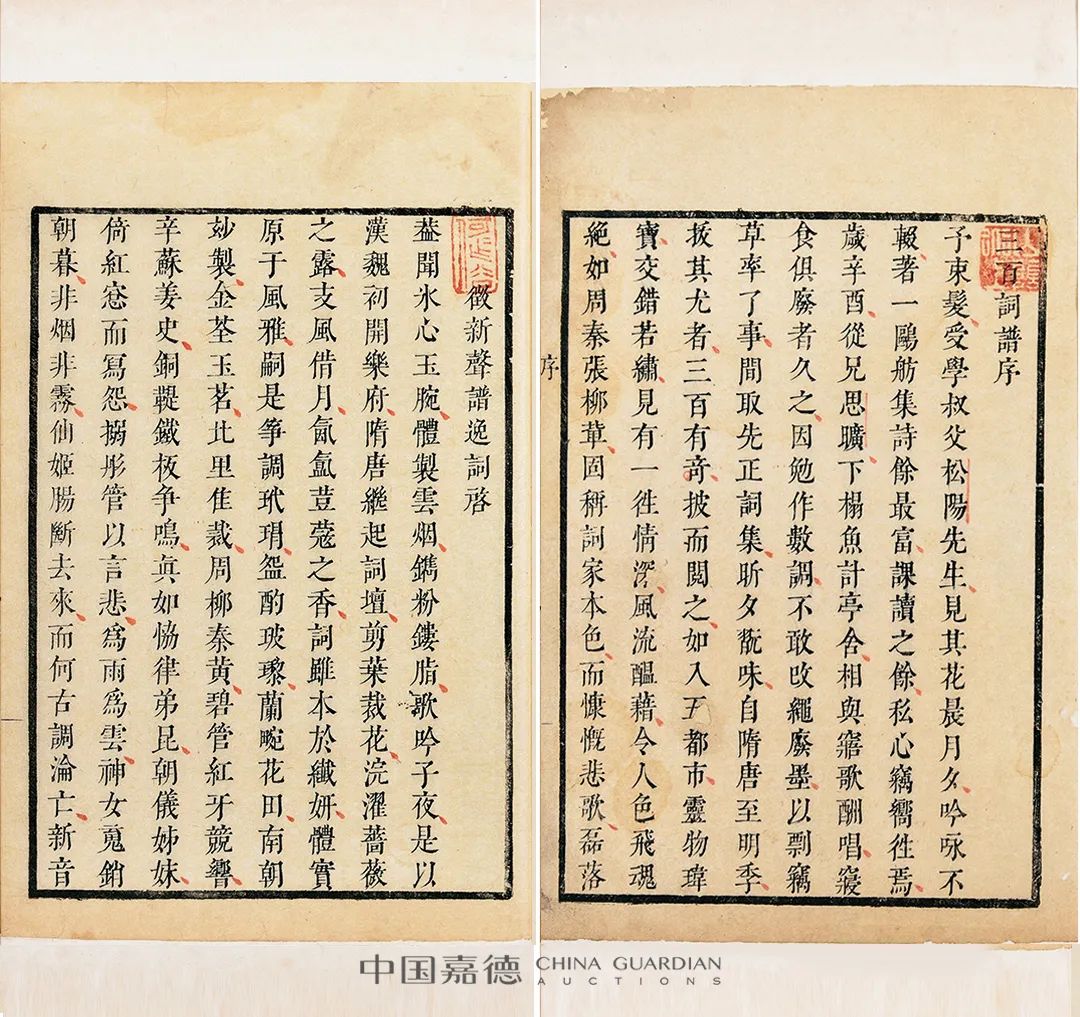 三百詞譜序
予束髮受學叔父松陽先生見其花晨月夕吟咏不
輟著一鷗舫集詩餘最富課讀之餘私心竊嚮徃焉
歲辛酉從兄思曠下榻魚計亭舍相與寤歌酬唱寢
食俱廢者久之因勉作數調不敢改繩廢墨以剽竊
草率了事間取先正詞集昕夕翫味自隋唐至明季
拔其尤者三百有竒披而閲之如入五都市靈物瑋
寶交錯若繡見有一徃情深風流醖藉令人色飛魂
絶如周秦張柳草固稱詞家本色而慷慨悲歌磊落
序
徵新聲譜逸詞啓
葢聞氷心玉腕體製雲烟鐫粉鏤脂歌吟子夜是以
漢魏初開樂府隋唐繼起詞壇剪葉裁花浣濯薔薇
之露支風借月氤氳荳蔻之香詞雖本於纖妍體實
原于風雅嗣是箏調玳瑁盌酌玻瓈蘭畹花田南朝
玅製金荃玉茗北里隹裁周柳秦黄碧管紅牙競響
辛蘇姜史銅鞮鐵板争鳴眞如恊律弟昆朝儀姊妹
倚紅窓而寫怨搦彤管以言悲爲雨爲雲神女䰟銷
朝暮非烟非霧仙姬腸斷去來而何古調淪亡新音
中国嘉德 CHINA GUARDIAN
AUCTIONS